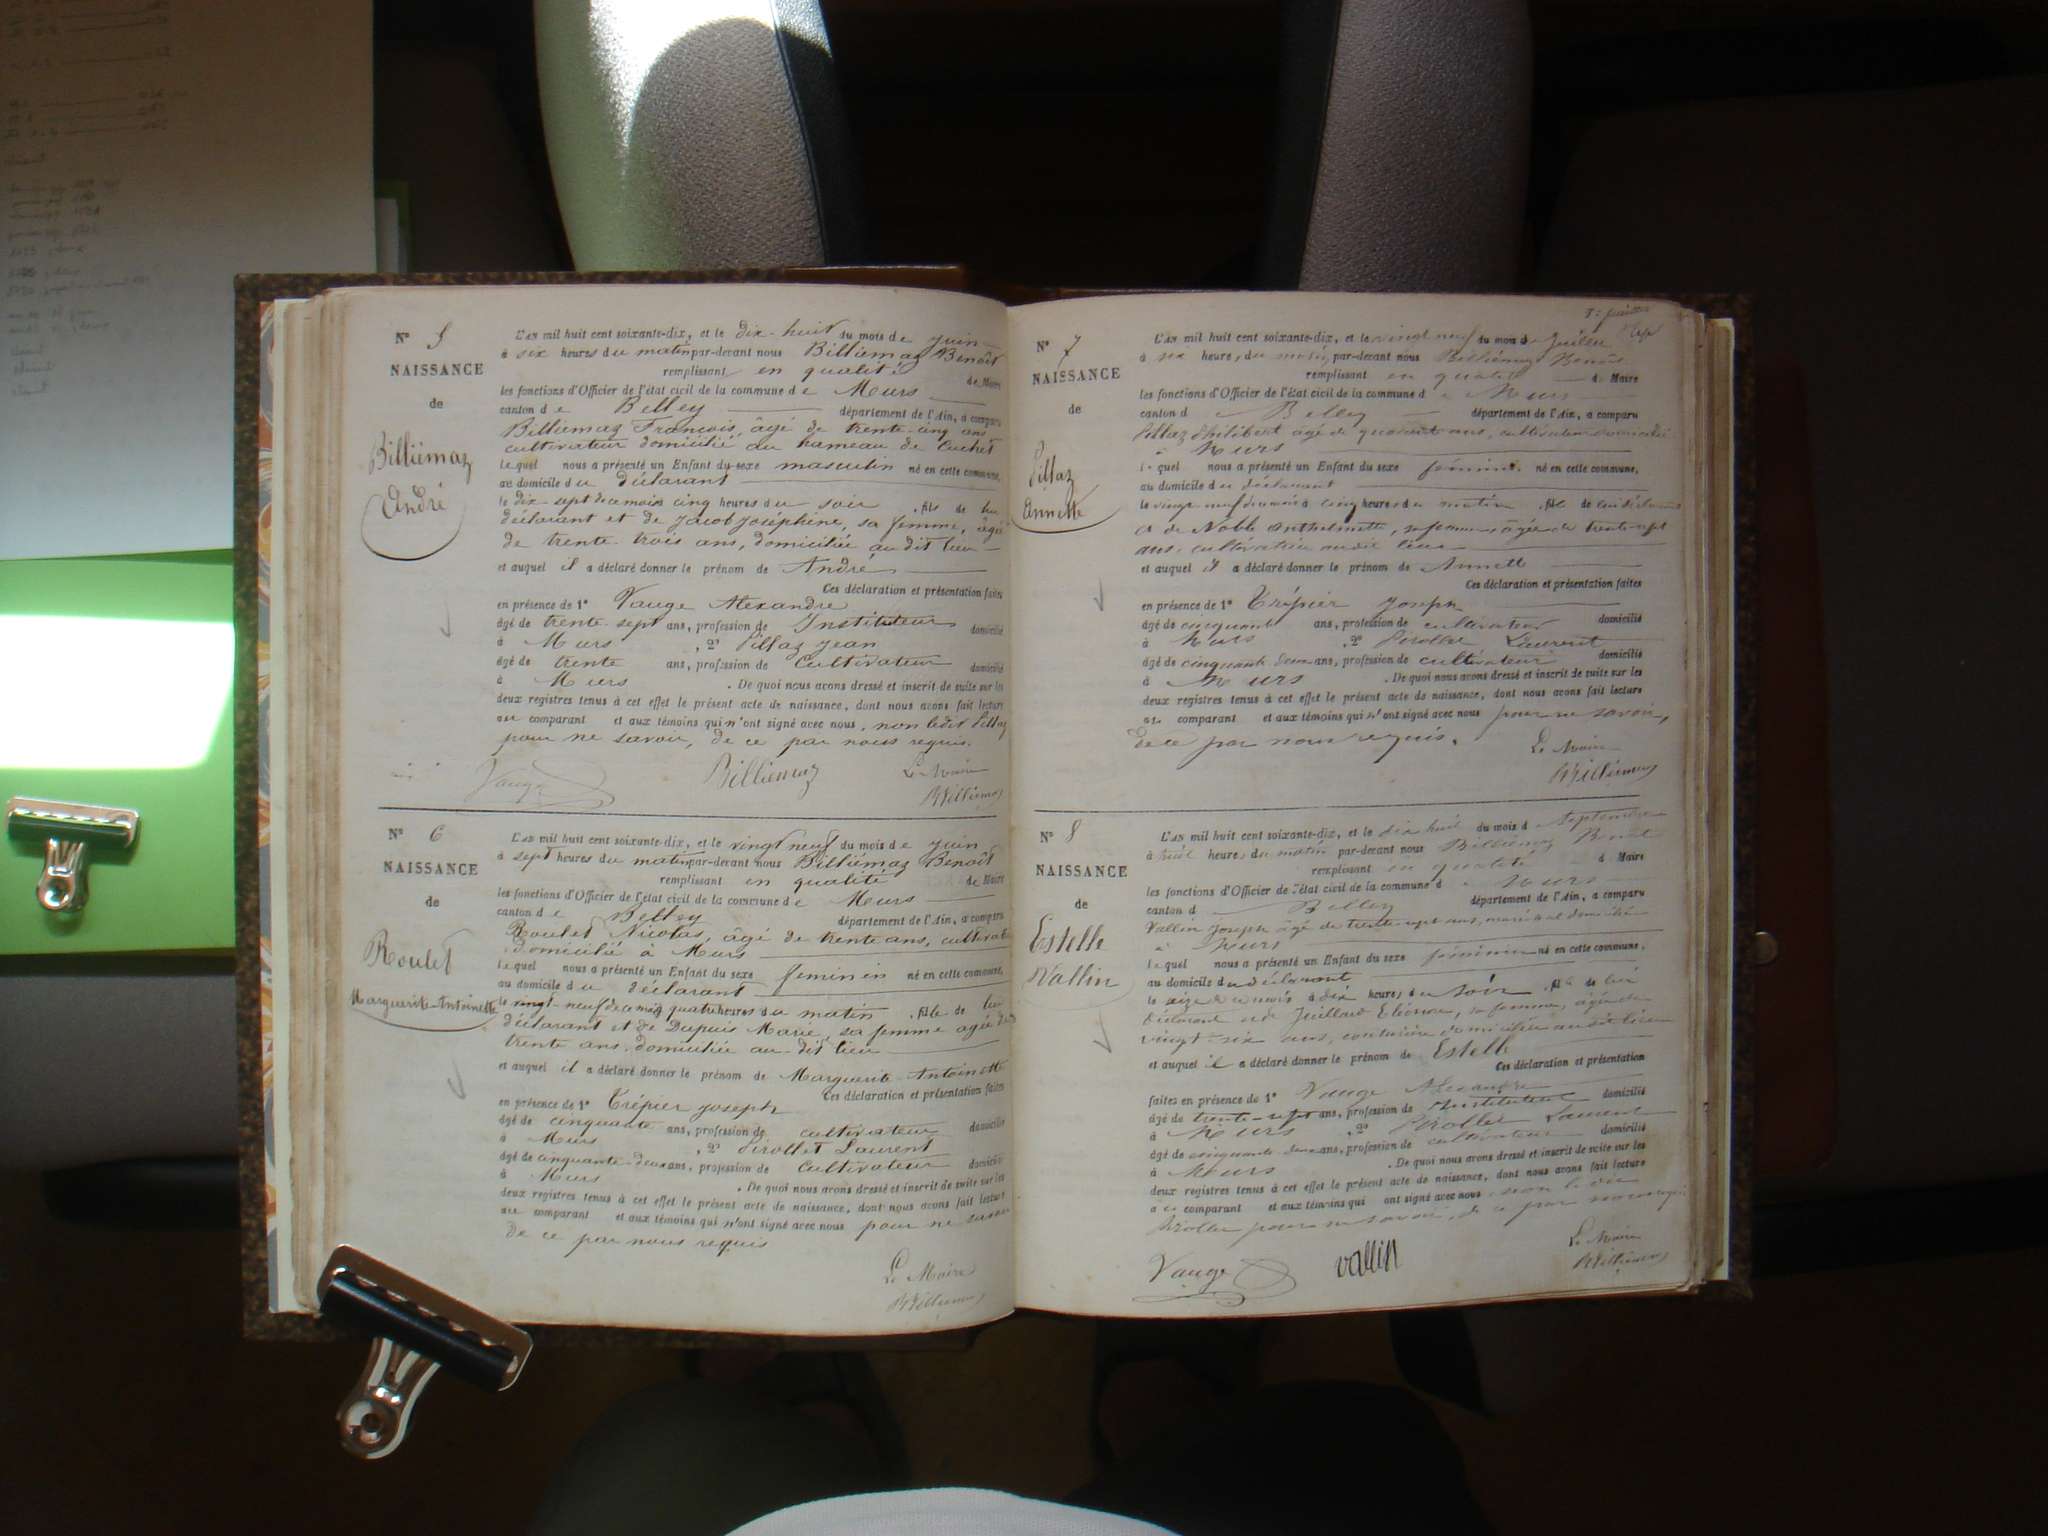 Nº 5
NAISSANCE
de
Billiémaz
André
L'AN mil huit cent soixante-dix, et le dix-huit du mois de juin
à six heures du matin par-devant nous Billiemaz Benoît
remplissant en qualité de Maire
les fonctions d'Officier de l'état civil de la commune de Murs
canton de Belley département de l'Ain, a comparu
Billiemaz François, âgé de trente-cinq ans
cultivateur domicilié au hameau de Cuchet
lequel nous a présenté un Enfant du sexe masculin né en cette commune,
au domicile du déclarant
le dix-sept de ce mois cinq heures du soir, fils de lui
déclarant et de Jacob Joséphine, sa femme, âgée
de trente-trois ans, domiciliée au dit lieu
et auquel il a déclaré donner le prénom de André
Ces déclaration et présentation faites
en présence de 1º Vauge Alexandre
âgé de trente-sept ans, profession de Instituteur domicilié
à Murs, 2º Pillaz Jean
âgé de trente ans, profession de Cultivateur domicilié
à Murs. De quoi nous avons dressé et inscrit de suite sur les
deux registres tenus à cet effet le présent acte de naissance, dont nous avons fait lecture
au comparant et aux témoins qui n'ont signé avec nous, non ledit Pillaz
pour ne savoir, de ce par nous requis.
Vauge Billiemaz Le Maire
Billiemaz
Nº 6
NAISSANCE
de
Roulet
Marguerite-Antoinette
L'AN mil huit cent soixante-dix, et le vingt neuf du mois de juin
à sept heures du matin par-devant nous Billiémaz Benoît
remplissant en qualité de Maire
les fonctions d'Officier de l'état civil de la commune de Murs
canton de Belley département de l'Ain, a comparu
Roulet Nicolas, âgé de trente ans, cultivateur
domicilié à Murs
lequel nous a présenté un Enfant du sexe feminin né en cette commune,
au domicile du déclarant
le vingt-neuf de ce mois quatre heures du matin, fille de lui
déclarant et de Dupuis Marie, sa femme agée de
trente ans domiciliée au-dit lieu
et auquel il a déclaré donner le prénom de Marguerite-Antoinette
Ces déclaration et présentation faites
en présence de 1º Trépier Joseph
âgé de cinquante ans, profession de cultivateur domicilié
à Murs, 2º Pirollet Laurent
âgé de cinquante-deux ans, profession de Cultivateur domicilié
à Murs. De quoi nous avons dressé et inscrit de suite sur les
deux registres tenus à cet effet le présent acte de naissance, dont nous avons fait lecture
au comparant et aux témoins qui n'ont signé avec nous pour ne savoir
de ce par nous requis
Le Maire
Billiemaz
Nº 7
NAISSANCE
de
Pillaz
Annette
L'AN mil huit cent soixante-dix, et le vingt neuf du mois de Juillet
à six heures du matin, par-devant nous Billiémaz Benoît
remplissant en qualité de Maire
les fonctions d'Officier de l'état civil de la commune de Murs
canton de Belley département de l'Ain, a comparu
Pillaz Philibert âgé de quarante ans, cultivateur domicilié
à Murs
lequel nous a présenté un Enfant du sexe féminin né en cette commune,
au domicile du déclarant
le vingt-neuf du mois à cinq heures du matin, fille de lui déclarant
et de Noble Anthelmette, sa femme âgée de trente-sept
ans, cultivatrice audit lieu
et auquel il a déclaré donner le prénom de Annette
Ces déclaration et présentation faites
en présence de 1º Trépier Joseph
âgé de cinquante ans, profession de cultivateur domicilié
à Murs, 2º Pirollet Laurent
âgé de cinquante-deux ans, profession de cultivateur domicilié
à Murs. De quoi nous avons dressé et inscrit de suite sur les
deux registres tenus à cet effet le présent acte de naissance, dont nous avons fait lecture
au comparant et aux témoins qui n'ont signé avec nous pour ne savoir,
de ce par nous requis.
Le Maire
Billiemaz
Nº 8
NAISSANCE
de
Estelle
Vallin
L'AN mil huit cent soixante-dix, et le dix huit du mois de Septembre
à huit heures du matin par-devant nous Billiémaz Benoit
remplissant en qualité de Maire
les fonctions d'Officier de l'état civil de la commune de Murs
canton de Belley département de l'Ain, a comparu
Vallin Joseph âgé de trente-sept ans, maréchal domicilié
à Murs
lequel nous a présenté un Enfant du sexe féminin né en cette commune,
au domicile du déclarant
le seize de ce mois à dix heures du soir, fille de lui
déclarant et de Juillard Eléonore, sa femme, âgée de
vingt-six ans, couturière domiciliée au dit lieu
et auquel il a déclaré donner le prénom de Estelle
Ces déclaration et présentation
faites en présence de 1º Vauge Alexandre
âgé de trente-sept ans, profession de Instituteur domicilié
à Murs, 2º Pirollet Laurent
âgé de cinquante-deux ans, profession de cultivateur domicilié
à Murs. De quoi nous avons dressé et inscrit de suite sur les
deux registres tenus à cet effet le présent acte de naissance, dont nous avons fait lecture
a ce comparant et aux témoins qui ont signé avec nous non le dit
Pirollet pour ne savoir, de ce par nous requis
Vauge vallin Le Maire
Billiemaz